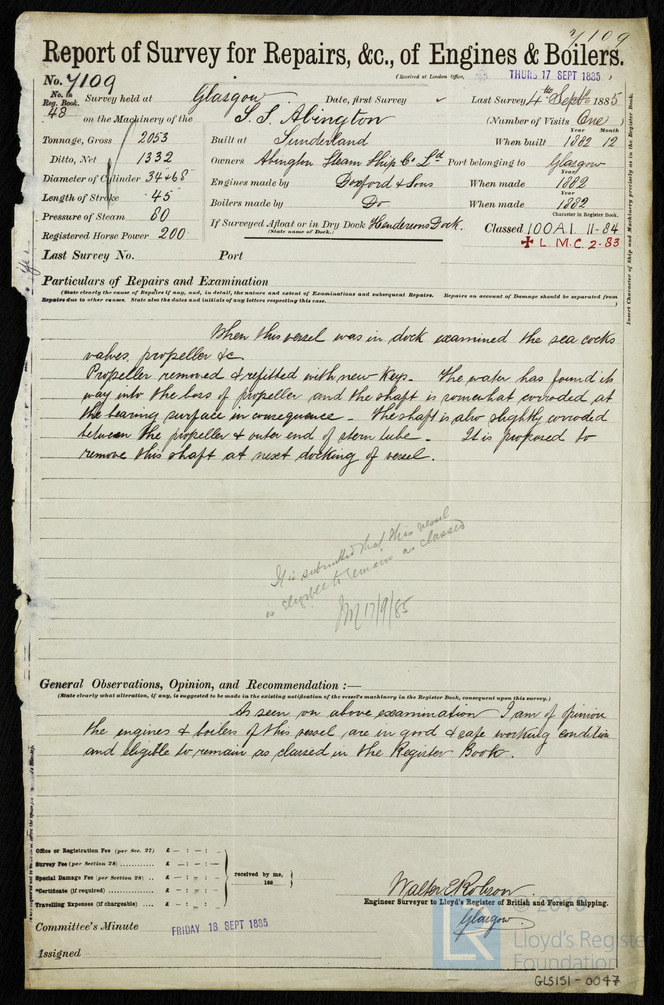 7109
Report of Survey for Repairs, &c., of Engines & Boilers.
No. 7109 (Received at London Office, THURS 17 SEPT 1885 )
No. in Reg. Book. 48 Survey held at Glasgow Date, first Survey ✓ Last Survey 4th Septr 1885
on the Machinery of the S.S. Abington (Number of Visits One )
Tonnage, Gross 2053 Built at Sunderland When built Year 1882 Month 12
Ditto, Net 1332 Owners Abington Steam Ship Co Ld Port belonging to Glasgow
Diameter of Cylinder 34 & 68 Engines made by Doxford & Sons When made Year 1882
Length of Stroke 45 Boilers made by Do When made Year 1882
Pressure of Steam 80 If Surveyed Afloat or in Dry Dock Hendersons Dock.
(State name of Dock.)
Character in Register Book.
Registered Horse Power 200 Classed 100 A.1. 11-84
✠ L.M.C. 2.83
Last Survey No. Port
Insert Character of Ship and Machinery precisely as in the Register Book.
Particulars of Repairs and Examination
(State clearly the cause of Repairs if any, and, in detail, the nature and extent of Examinations and subsequent Repairs. Repairs on account of Damage should be separated from
Repairs due to other causes. State also the dates and initials of any letters respecting this case. )
When this vessel was in dock examined the sea cocks
valves, propeller &c
Propeller removed & refitted with new keys. The water has found its
way into the boss of propeller and the shaft is somewhat corroded at
the bearing surface in consequence. The shaft is also slightly corroded
between the propeller & outer end of stern tube. It is proposed to
remove this shaft at next docking of vessel.
It is submitted that this vessel
is eligible to remain as classed
17/9/85
General Observations, Opinion, and Recommendation :—
(State clearly what alteration, if any, is suggested to be made in the existing notification of the vessel's machinery in the Register Book, consequent upon this survey.)
As seen on above examination I am of opinion
the engines & boilers of this vessel are in good & safe working condition
and eligible to remain as classed in the Register Book.
Office or Registration Fee (per Sec. 27) £ — : — : —
Survey Fee (per Section 28) ............ £ — : — : —
Special Damage Fee (per Section 28) .. £ — : — : — received by me,
*Certificate (if required) ............ £ — : — : — 188
Travelling Expenses (if chargeable) .... £ — : — : —
Walter E Robson
Engineer Surveyor to Lloyd's Register of British and Foreign Shipping.
Glasgow
Committee's Minute FRIDAY 18 SEPT 1885
Assigned
LR
Lloyd's Register
Foundation
GLS151-0047